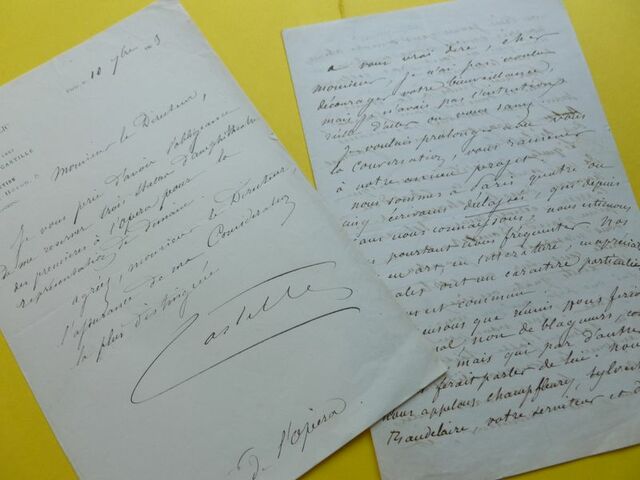 10 9bre
CASTILLE
Monsieur le Directeur,
Je vous prie d'avoir l'obligeance
de me réserver trois stalles d'amphithéatre
ou premières à l'opéra pour la
représentation de dimanche.
agréez, monsieur le Directeur,
l'assurance de ma Considération
la plus distinguée
Castille
de l'opéra
a vous vrai dire, cher
monsieur, je n'ai pas voulu
décourager votre bienveillance,
mais je n'avais pas l'intention
Je voulais prolonger avec vous
la conversation, vous ramener
à notre ancien projet.
nous sommes à Paris quatre ou
cinq écrivains qui depuis
ans nous connaissons, nous estimons
pourtant nous fréquenter. Nos
en art, en littérature, en
ales ont un caractère particulier
est commun.
ensons que réunis nous ferions
nal non de blagueurs,
mais qui par d'autres
ferait parler de lui. nous
nous appelons champfleury,
Baudelaire, votre serviteur et